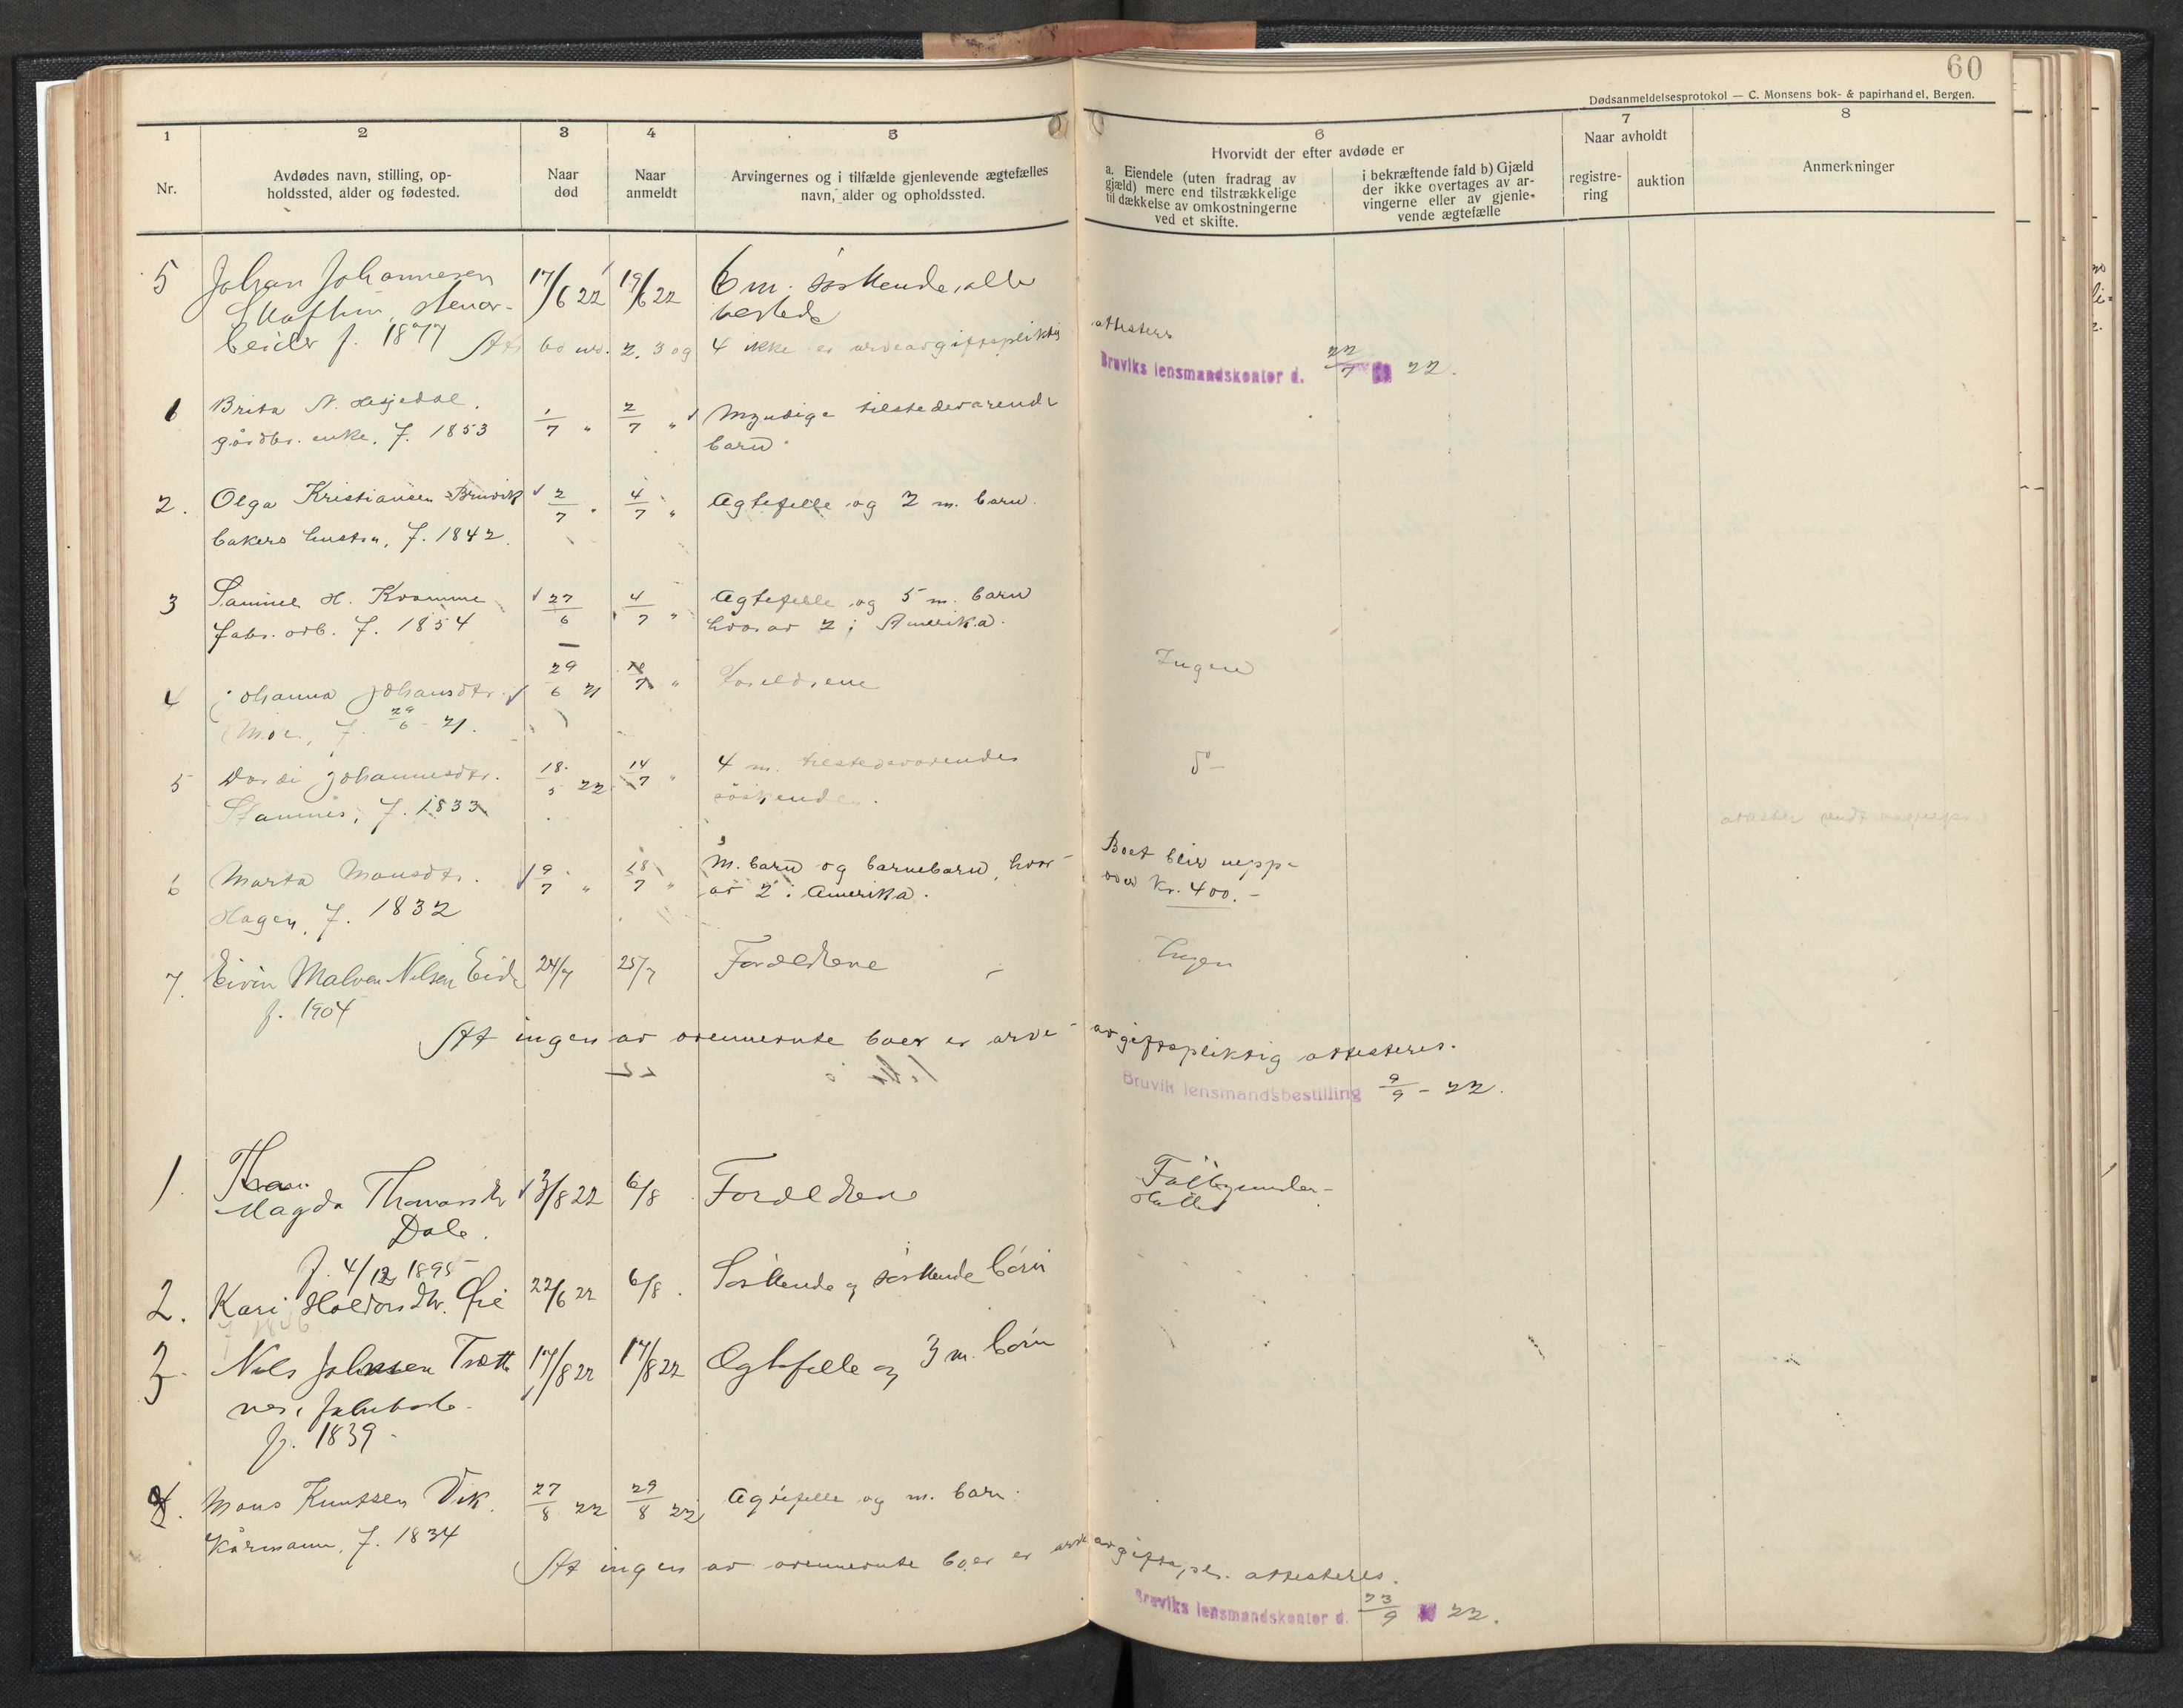 60
Dødsanmeldelsesprotokol — C. Monsens bok- & papirhandel, Bergen.
1 2 3 4 5 6 7 8
Nr.
Avdødes navn, stilling, op-
holdssted, alder og fødested.
Naar
død
Naar
anmeldt
Arvingernes og i tilfælde gjenlevende ægtefælles
navn, alder og opholdssted.
Hvorvidt der efter avdøde er
a. Eiendele (uten fradrag av
gjæld) mere end tilstrækkelige
til dækkelse av omkostningerne
ved et skifte.
i bekræftende fald b) Gjæld
der ikke overtages av ar-
vingerne eller av gjenle-
vende ægtefælle
Naar avholdt
registre-
ring
auktion
Anmerkninger
5 Johan Johannesen 17/6 22 19/6 22 6 m. søskende, alle
beider f. 1877
At bo nr. 2, 3 og 4 ikke er arveavgiftspliktig attesteres
Bruviks lensmandskontor d. 22/7 22.
1 Brita N. Hesjedal. 1/7 " 2/7 " Myndige tilstedeværende
gårdbr. enke, f. 1853 barn.
2. Olga Kristiansen Bruvik 2/7 " 4/7 " Ægtefelle og 2 m. barn.
bakers hustru, f. 1842.
3 Samuel H. Kvamme 27/6 4/7 " Ægtefelle og 5 m. barn
fabr. arb. f. 1854 hvorav 2 i Amerika.
4 Johanna Johansdtr. 29/6 21 7 " Foreldrene Ingen
Moe, f. 29/6 - 21.
5 Dordi Johannesdtr. 18/5 22 14/7 " 4 m. tilstedeværendes d°-
Stamnes, f. 1833 søskende.
6 Marta Monsdtr. 9/7 " 18/7 " m. barn og barnebarn, hvor- Boet blir neppe
Hagen, f. 1832 av 2 i Amerika. over kr. 400.-
7. Eivin Malvin Nilsen Eide 24/7 25/7 Foreldrene Ingen
f. 1904
At ingen av ovennevnte boer er arve-avgiftspliktig attesteres.
Bruvik lensmandsbestilling 9/9 - 22.
1. Magda Thomasdtr 3/8 22 6/8 Foreldrene Fattigunder-
Dale. støttet
f. 4/12 1895
2. Kari Haldorsdtr. Øie 22/6 22 6/8. Søskende og søskende børn
3 Nils Johnsen Trætte 17/8 22 17/8 22 Ægtefelle og 3 m. børn
nes, Jalnbode
f. 1839
4. Mons Knutsen Vik. 27/8 22 29/8 22 Ægtefelle og m. barn.
Kårmann, f. 1834
At ingen av ovennevnte boer er arveavgiftspl. attesteres.
Bruviks lensmandskontor d. 23/9 22.